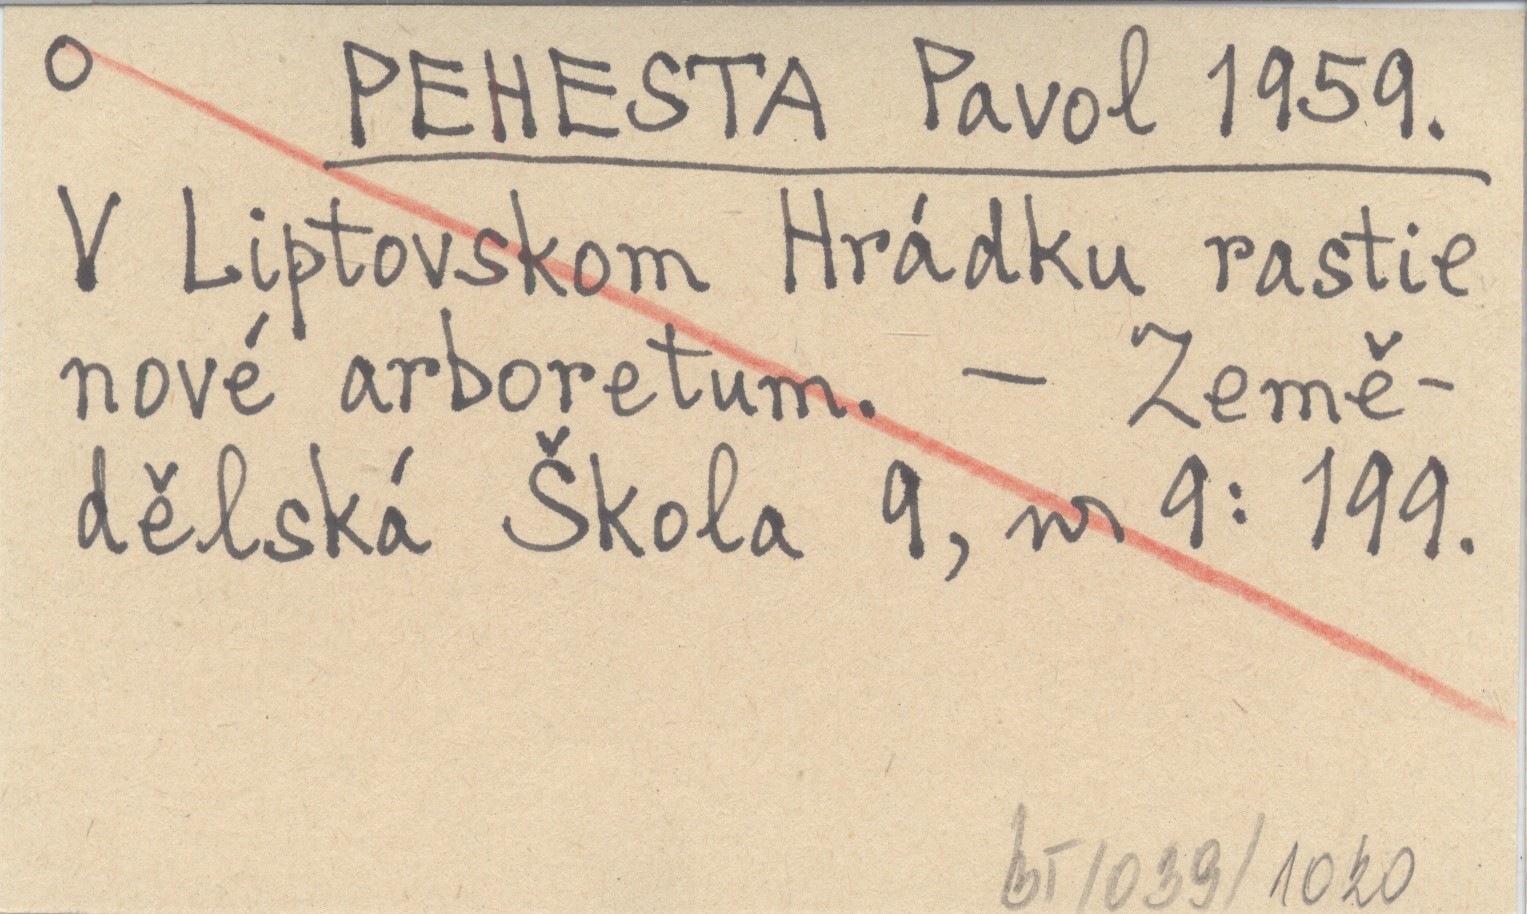 O PEHESTA Pavol 1959.
V Liptovskom Hrádku rastie
nové arboretum. – Země-
dělská Škola 9, nr 9: 199.
/039/1020